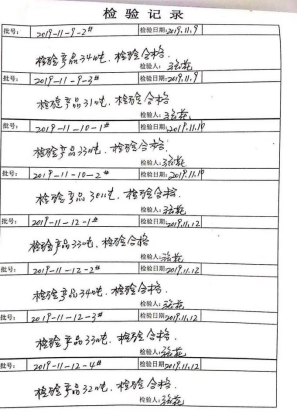 检验记录
批号: 2019-11-9-2# 检验日期: 2019.11.9
检验产品34吨，检验合格.
检验人:
批号: 2019-11-9-3# 检验日期: 2019.11.9
检验产品31吨，检验合格
检验人:
批号: 2019-11-10-1# 检验日期: 2019.11.10
检验产品33吨，检验合格.
检验人:
批号: 2019-11-10-2# 检验日期: 2019.11.10
检验产品30吨，检验合格.
检验人:
批号: 2019-11-12-1# 检验日期: 2019.11.12
检验产品33吨，检验合格
检验人:
批号: 2019-11-12-2# 检验日期: 2019.11.12
检验产品34吨，检验合格.
检验人:
批号: 2019-11-12-3# 检验日期: 2019.11.12
检验产品33吨，检验合格.
检验人:
批号: 2019-11-12-4# 检验日期: 2019.11.12
检验产品32吨，检验合格.
检验人: